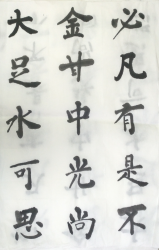 必凡有是不
金廿中光尚
大足水可思